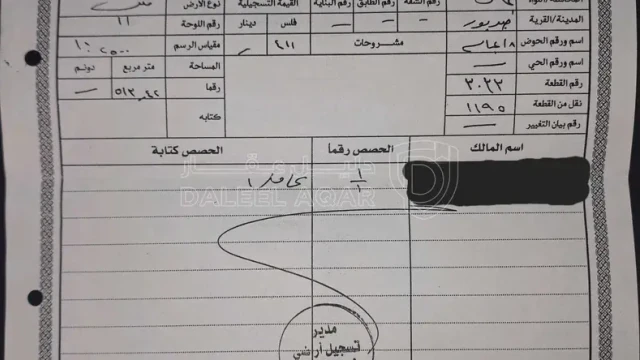 رقم الشقة رقم الطابق رقم البناية القيمة التسجيلية نوع الأرض
المدينة/القرية - - - فلس دينار رقم اللوحة ١١
اسم ورقم الحوض ١٨ مشروحات ٢١١ مقياس الرسم ١:٢٥٠٠
اسم ورقم الحي — المساحة متر مربع دونم
رقم القطعة ٢٠٢٢ رقما ٥١٣.٤٢ —
نقل من القطعة ١١٩٥ كتابه
رقم بيان التغيير —
اسم المالك الحصص رقما الحصص كتابة
١/١ كاملا
دليل عقار
DALEEL AQAR
مدير
تسجيل أراضي